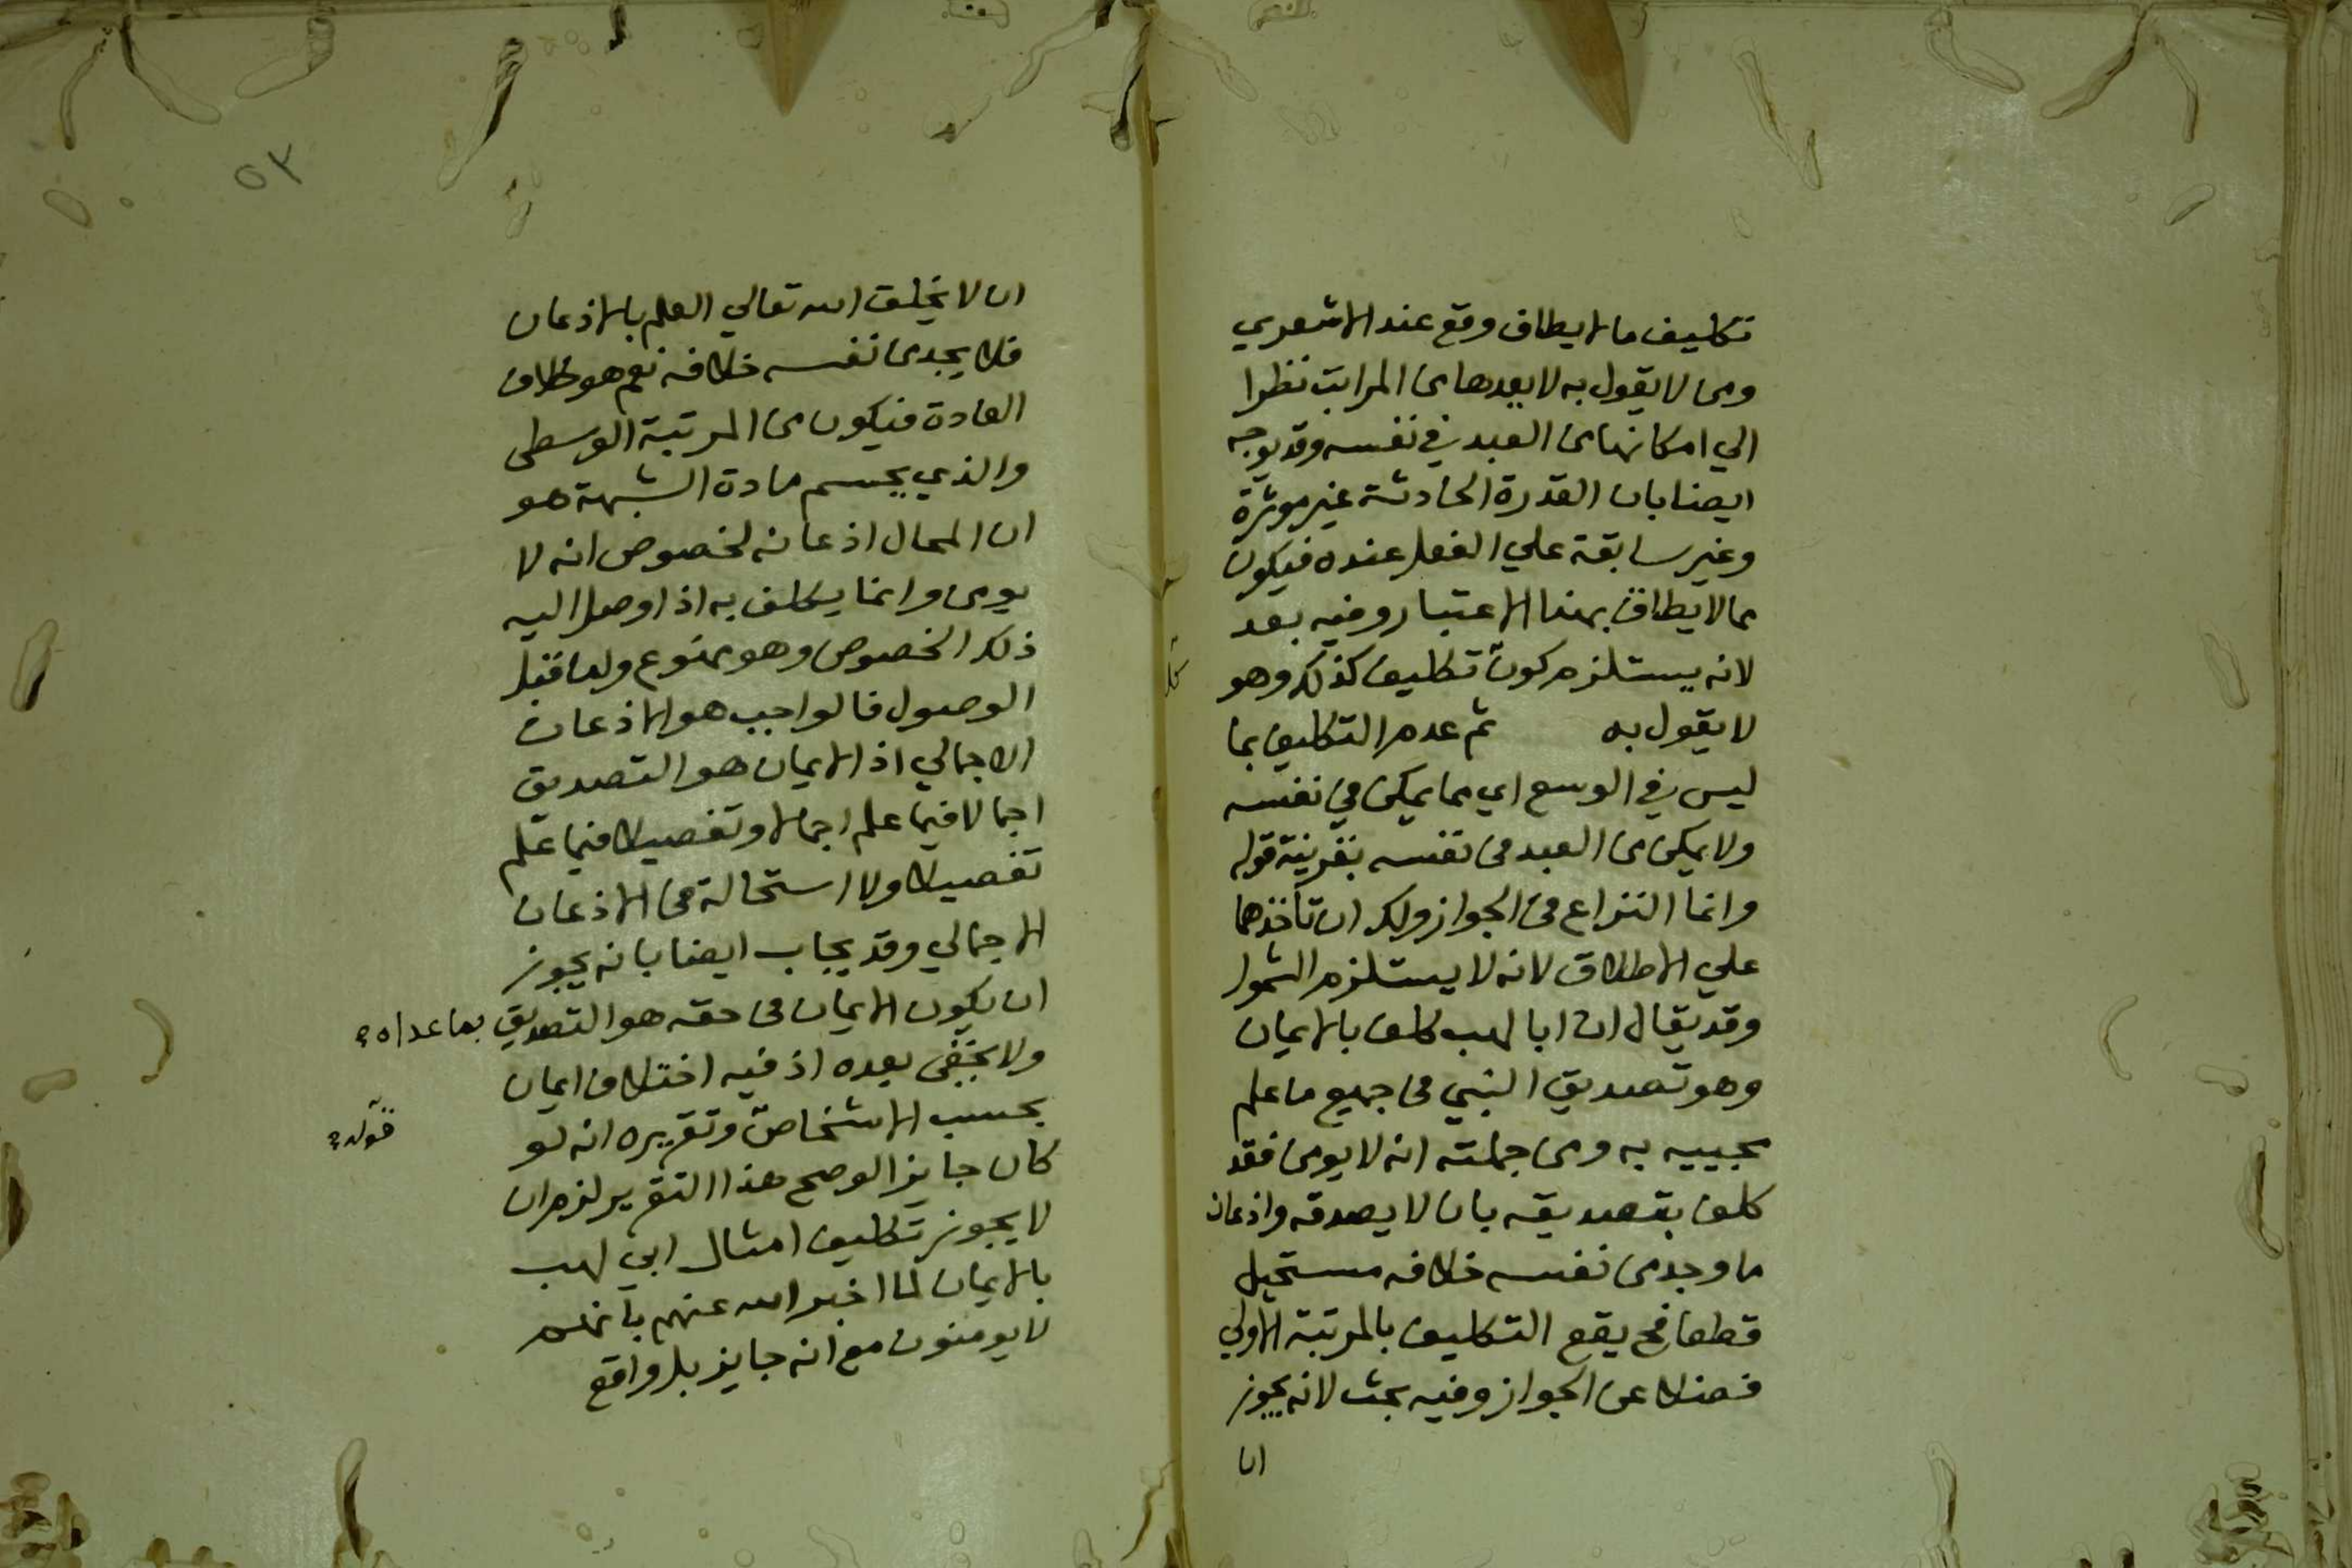 تكليف ما لا يطاق وقع عند الاشعري
ومن لا يقول به لا يعدها من المراتب نظرا
الي امكانها من العبد في نفسه وقد يوجه
ايضا بان القدرة الحادثة غير موثرة
وغير سابقة علي الفعل عنده فيكون
مما لا يطاق بهذا الاعتبار وفيه بعد
لانه يستلزم كون تكليف كذلك وهو
كل
لا يقول به ثم عدم التكليف بما
ليس في الوسع اي مما يمكن في نفسه
ولا يمكن من العبد في نفسه بقرينة قوله
وانما النزاع في الجواز ولك ان تاخذهما
علي الاطلاق لانه لا يستلزم الشمول
وقد يقال ان ابا لهب كلف بالايمان
وهو تصديق النبي في جميع ما علم
مجييه به ومن جملته انه لا يومن فقد
كلف بتصديقه بان لا يصدقه واذعان
ما وجد من نفسه خلافه مستحيل
قطعا فح يقع التكليف بالمرتبة الاولي
فضلا عن الجواز وفيه بحث لانه يجوز
ان
٥٣
ان لا يخلق الله تعالي العلم بالاذعان
فلا يجد من نفسه خلافه نعم هو خلاف
العادة فيكون من المرتبة الوسطى
والذي يحسم مادة الشبهة هو
ان المحال اذعانه لخصوص انه لا
يومن وانما يكلف به اذا وصل اليه
ذلك الخصوص وهو ممنوع واما قبل
الوصول فالواجب هو الاذعان
الاجمالي اذ الايمان هو التصديق
اجمالا فيما علم اجمالا وتفصيلا فيما علم
تفصيلا ولا استحالة في الاذعان
الاجمالي وقد يجاب ايضا بانه يجوز
ان يكون الايمان في حقه هو التصديق بما عداه
ولا يخفى بعده اذ فيه اختلاف ايمان
بحسب الاشخاص وتقريره انه لو
قوله
كان جايزا لو صح هذا التقرير لزم ان
لا يجوز تكليف امثال ابي لهب
بالايمان لما اخبر الله عنهم بانهم
لا يومنون مع انه جايز بل واقع